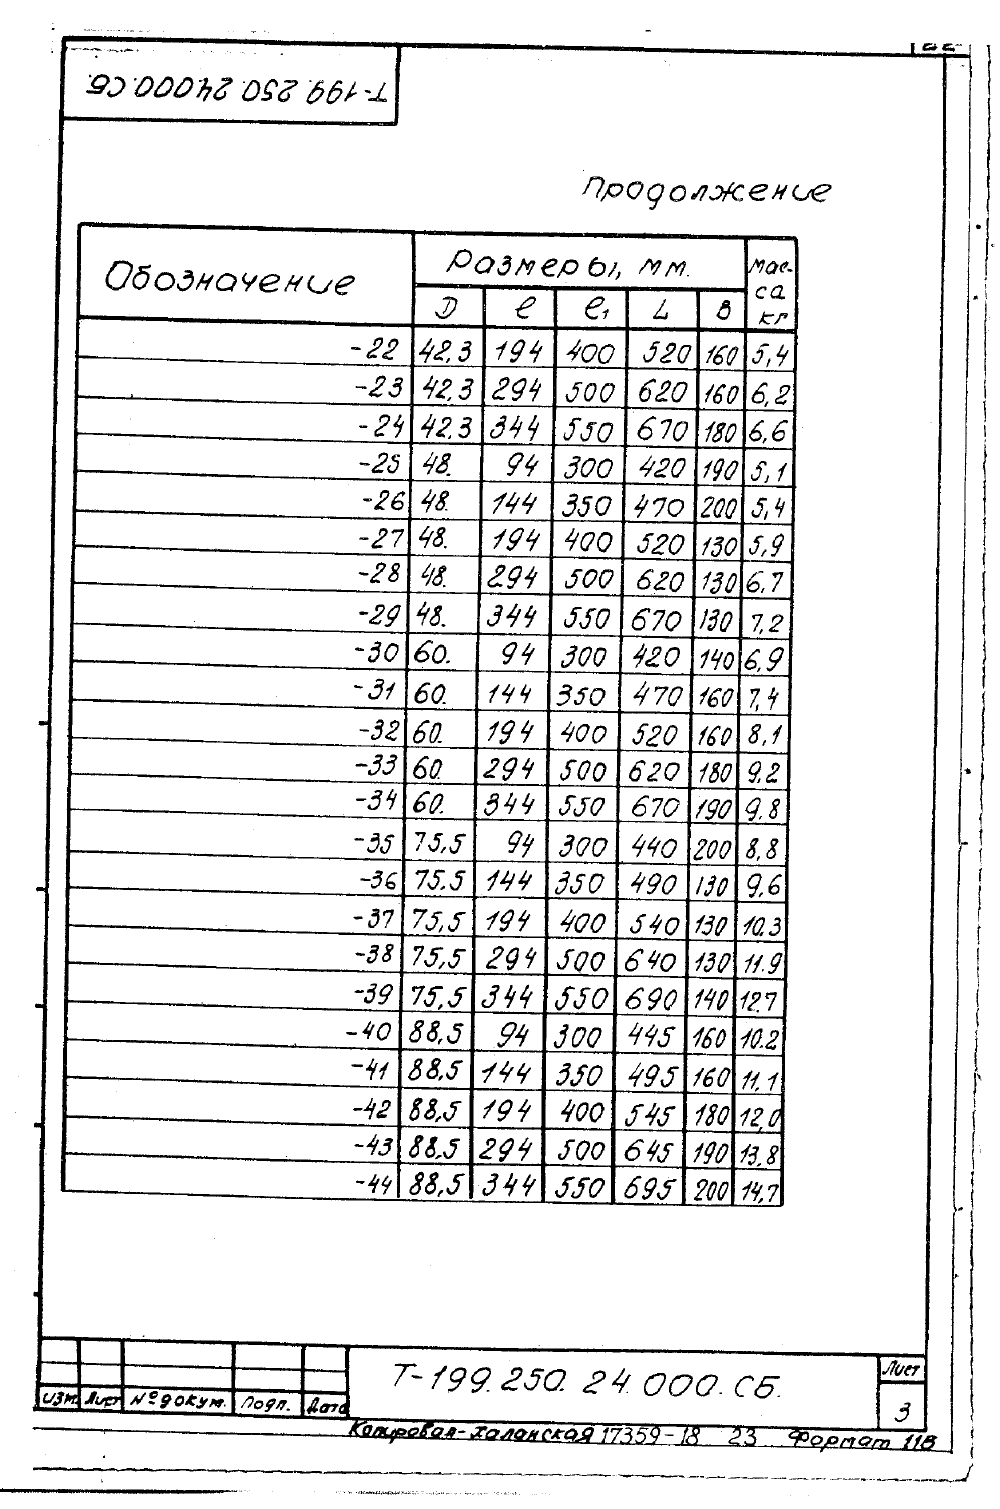 Т-199.250.24000.СБ.
Продолжение
Обозначение Размеры, мм. Мас-са кг
D ℓ ℓ₁ L В
-22 42,3 194 400 520 160 5,4
-23 42,3 294 500 620 160 6,2
-24 42,3 344 550 670 180 6,6
-25 48. 94 300 420 190 5,1
-26 48. 144 350 470 200 5,4
-27 48. 194 400 520 130 5,9
-28 48. 294 500 620 130 6,7
-29 48. 344 550 670 130 7,2
-30 60. 94 300 420 140 6,9
-31 60. 144 350 470 160 7,4
-32 60. 194 400 520 160 8,1
-33 60. 294 500 620 180 9,2
-34 60. 344 550 670 190 9,8
-35 75,5 94 300 440 200 8,8
-36 75.5 144 350 490 130 9,6
-37 75,5 194 400 540 130 10,3
-38 75,5 294 500 640 130 11.9
-39 75,5 344 550 690 140 12.7
-40 88,5 94 300 445 160 10.2
-41 88,5 144 350 495 160 11,1
-42 88,5 194 400 545 180 12,0
-43 88,5 294 500 645 190 13,8
-44 88,5 344 550 695 200 14,7
Т-199.250.24.000.СБ. Лист
Изм. Лист № докум. Подп. Дата 3
Копировал-Халанская 17359-18 23 Формат 11В